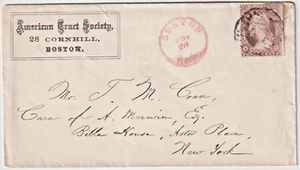 American Tract Society,
28 CORNHILL,
BOSTON.
BOSTON
NOV
Mr. T. M. Coan,
Care of A. Merwin, Esq.
Bible House, Astor Place,
New York